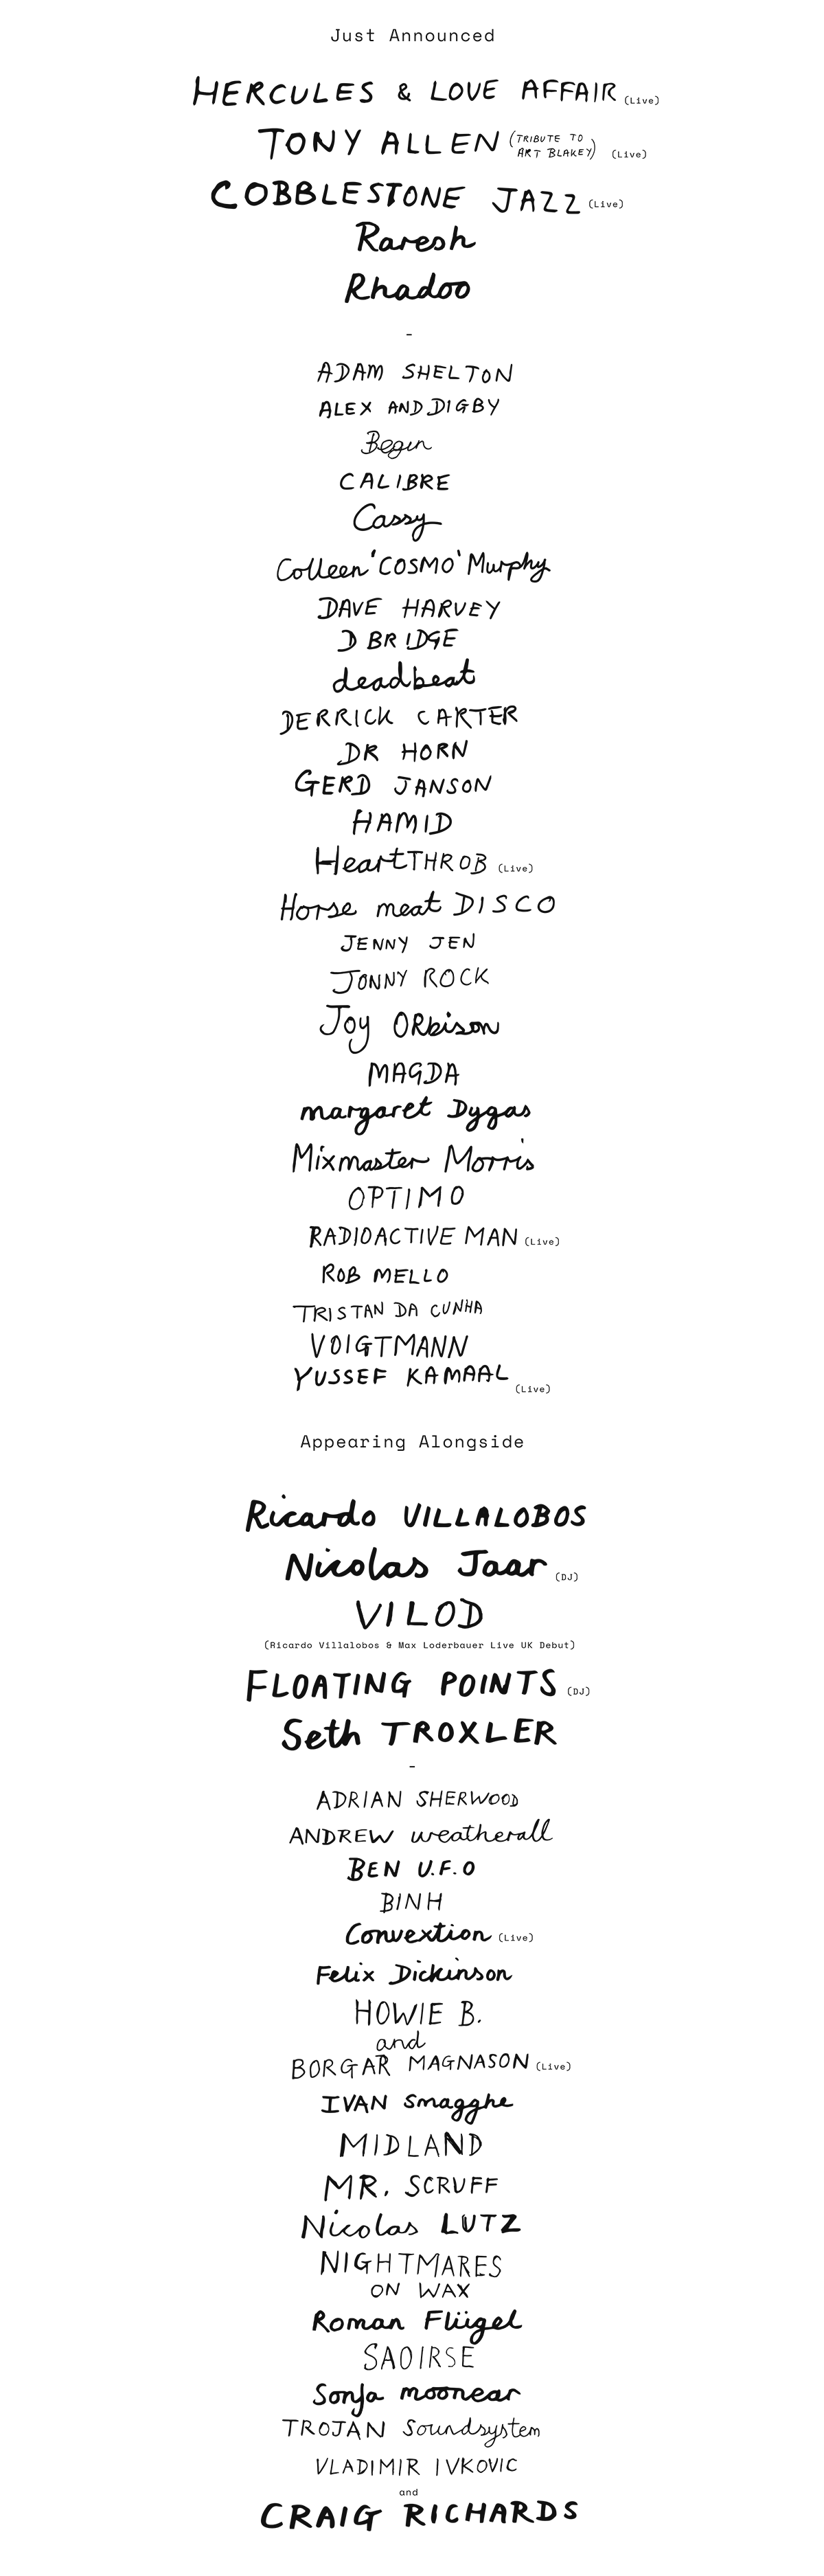 Just Announced
HERCULES & LOVE AFFAIR (Live)
TONY ALLEN (TRIBUTE TO
ART BLAKEY) (Live)
COBBLESTONE JAZZ (Live)
Raresh
Rhadoo
-
ADAM SHELTON
ALEX AND DIGBY
Begin
CALIBRE
Cassy
Colleen 'COSMO' Murphy
DAVE HARVEY
D BRIDGE
deadbeat
DERRICK CARTER
DR HORN
GERD JANSON
HAMID
HeartTHROB (Live)
Horse meat DISCO
JENNY JEN
JONNY ROCK
Joy ORbison
MAGDA
margaret Dygas
Mixmaster Morris
OPTIMO
RADIOACTIVE MAN (Live)
ROB MELLO
TRISTAN DA CUNHA
VOIGTMANN
YUSSEF KAMAAL (Live)
Appearing Alongside
Ricardo VILLALOBOS
Nicolas Jaar (DJ)
VILOD
(Ricardo Villalobos & Max Loderbauer Live UK Debut)
FLOATING POINTS (DJ)
Seth TROXLER
-
ADRIAN SHERWOOD
ANDREW weatherall
BEN U.F.O
BINH
Convextion (Live)
Felix Dickinson
HOWIE B.
and
BORGAR MAGNASON (Live)
IVAN Smagghe
MIDLAND
MR. SCRUFF
Nicolas LUTZ
NIGHTMARES
ON WAX
Roman Flügel
SAOIRSE
Sonja moonear
TROJAN Soundsystem
VLADIMIR IVKOVIC
and
CRAIG RICHARDS